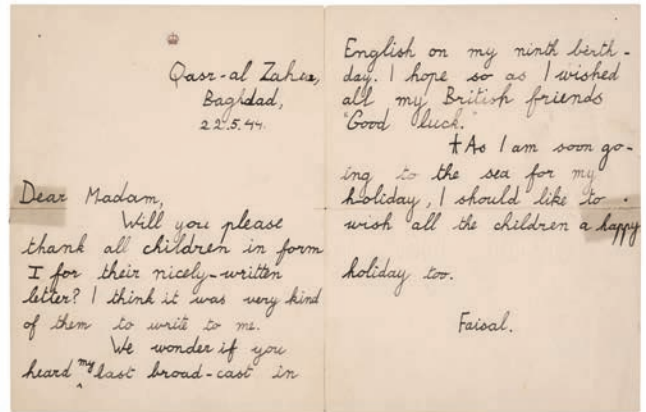 Qasr-al Zahur,
Baghdad,
22.5.44.
Dear Madam,
Will you please
thank all children in form
I for their nicely-written
letter? I think it was very kind
of them to write to me.
We wonder if you
heard my last broad-cast in
English on my ninth birth-
day. I hope so as I wished
all my British friends
"Good luck."
As I am soon go-
ing to the sea for my
holiday, I should like to
wish all the children a happy
holiday too.
Faisal.